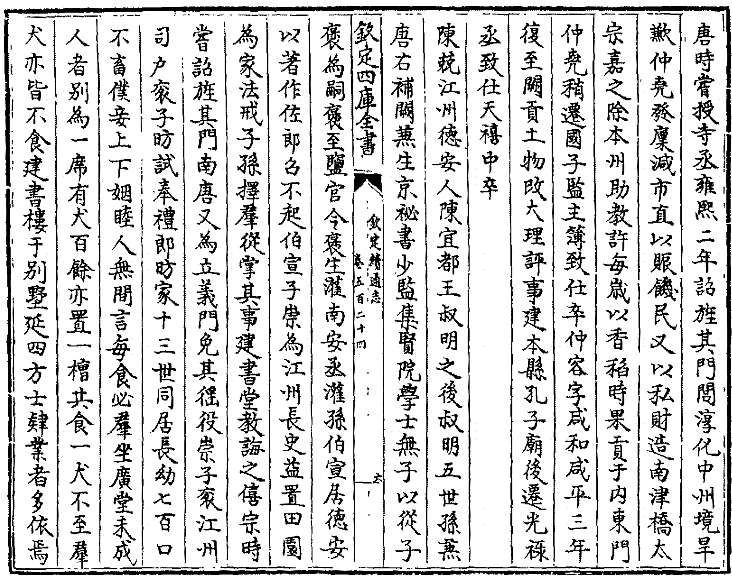 唐時嘗授寺丞雍熙二年詔旌其門閭淳化中州境旱
歉仲堯發廩減市直以賑饑民又以私財造南津橋太
宗嘉之除本州助教許每嵗以香稻時果貢于内東門
仲堯稍遷國子監主簿致仕卒仲容字咸和咸平三年
復至闕貢土物改大理評事建本縣孔子廟後遷光禄
丞致仕天禧中卒
陳兢江州德安人陳宜都王叔明之後叔明五世孫兼
唐右補闕兼生京秘書少監集賢院學士無子以從子
欽定四庫全書
欽定續通志
卷五百二十四
六
褒為嗣褒至鹽官令褒生灌南安丞灌孫伯宣居德安
以著作佐郎召不起伯宣子崇為江州長史益置田園
為家法戒子孫擇羣從掌其事建書堂教誨之僖宗時
嘗詔旌其門南唐又為立義門免其徭役崇子衮江州
司户衮子昉試奉禮郎昉家十三世同居長幼七百口
不畜僕妾上下姻睦人無間言每食必羣坐廣堂未成
人者别為一席有犬百餘亦置一槽共食一犬不至羣
犬亦皆不食建書樓于别墅延四方士肄業者多依焉